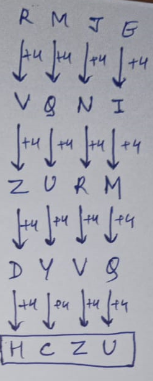 R M J E
+4 +4 +4 +4
V Q N I
+4 +4 +4 +4
Z U R M
+4 +4 +4 +4
D Y V Q
+4 +4 +4 +4
H C Z U